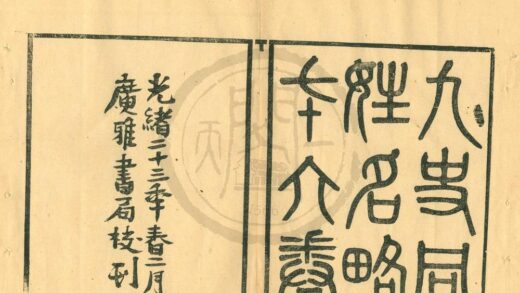 九史同
姓名略
七十六卷
光緒二十三年春二月
廣雅書局校刊